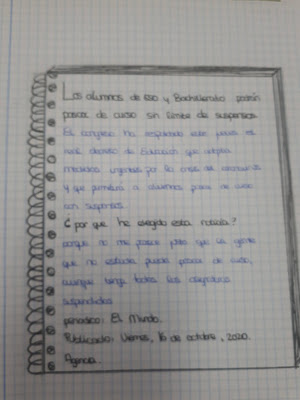 Los alumnos de eso y Bachillerato podrán
pasar de curso sin límite de suspensos
El congreso ha respaldado este jueves el
real decreto de Educación que adopta
medidas urgentes por la crisis del coronavirus
y que permitirá a alumnos pasar de curso
con suspensos.
¿por que he elegido esta noticia?
porque no me parece justo que la gente
que no estudia pueda pasar de curso,
aunque tenga todas las asignaturas
suspendidas
periodico: El Mundo.
Publicado: Viernes, 16 de octubre, 2020.
Agencia.